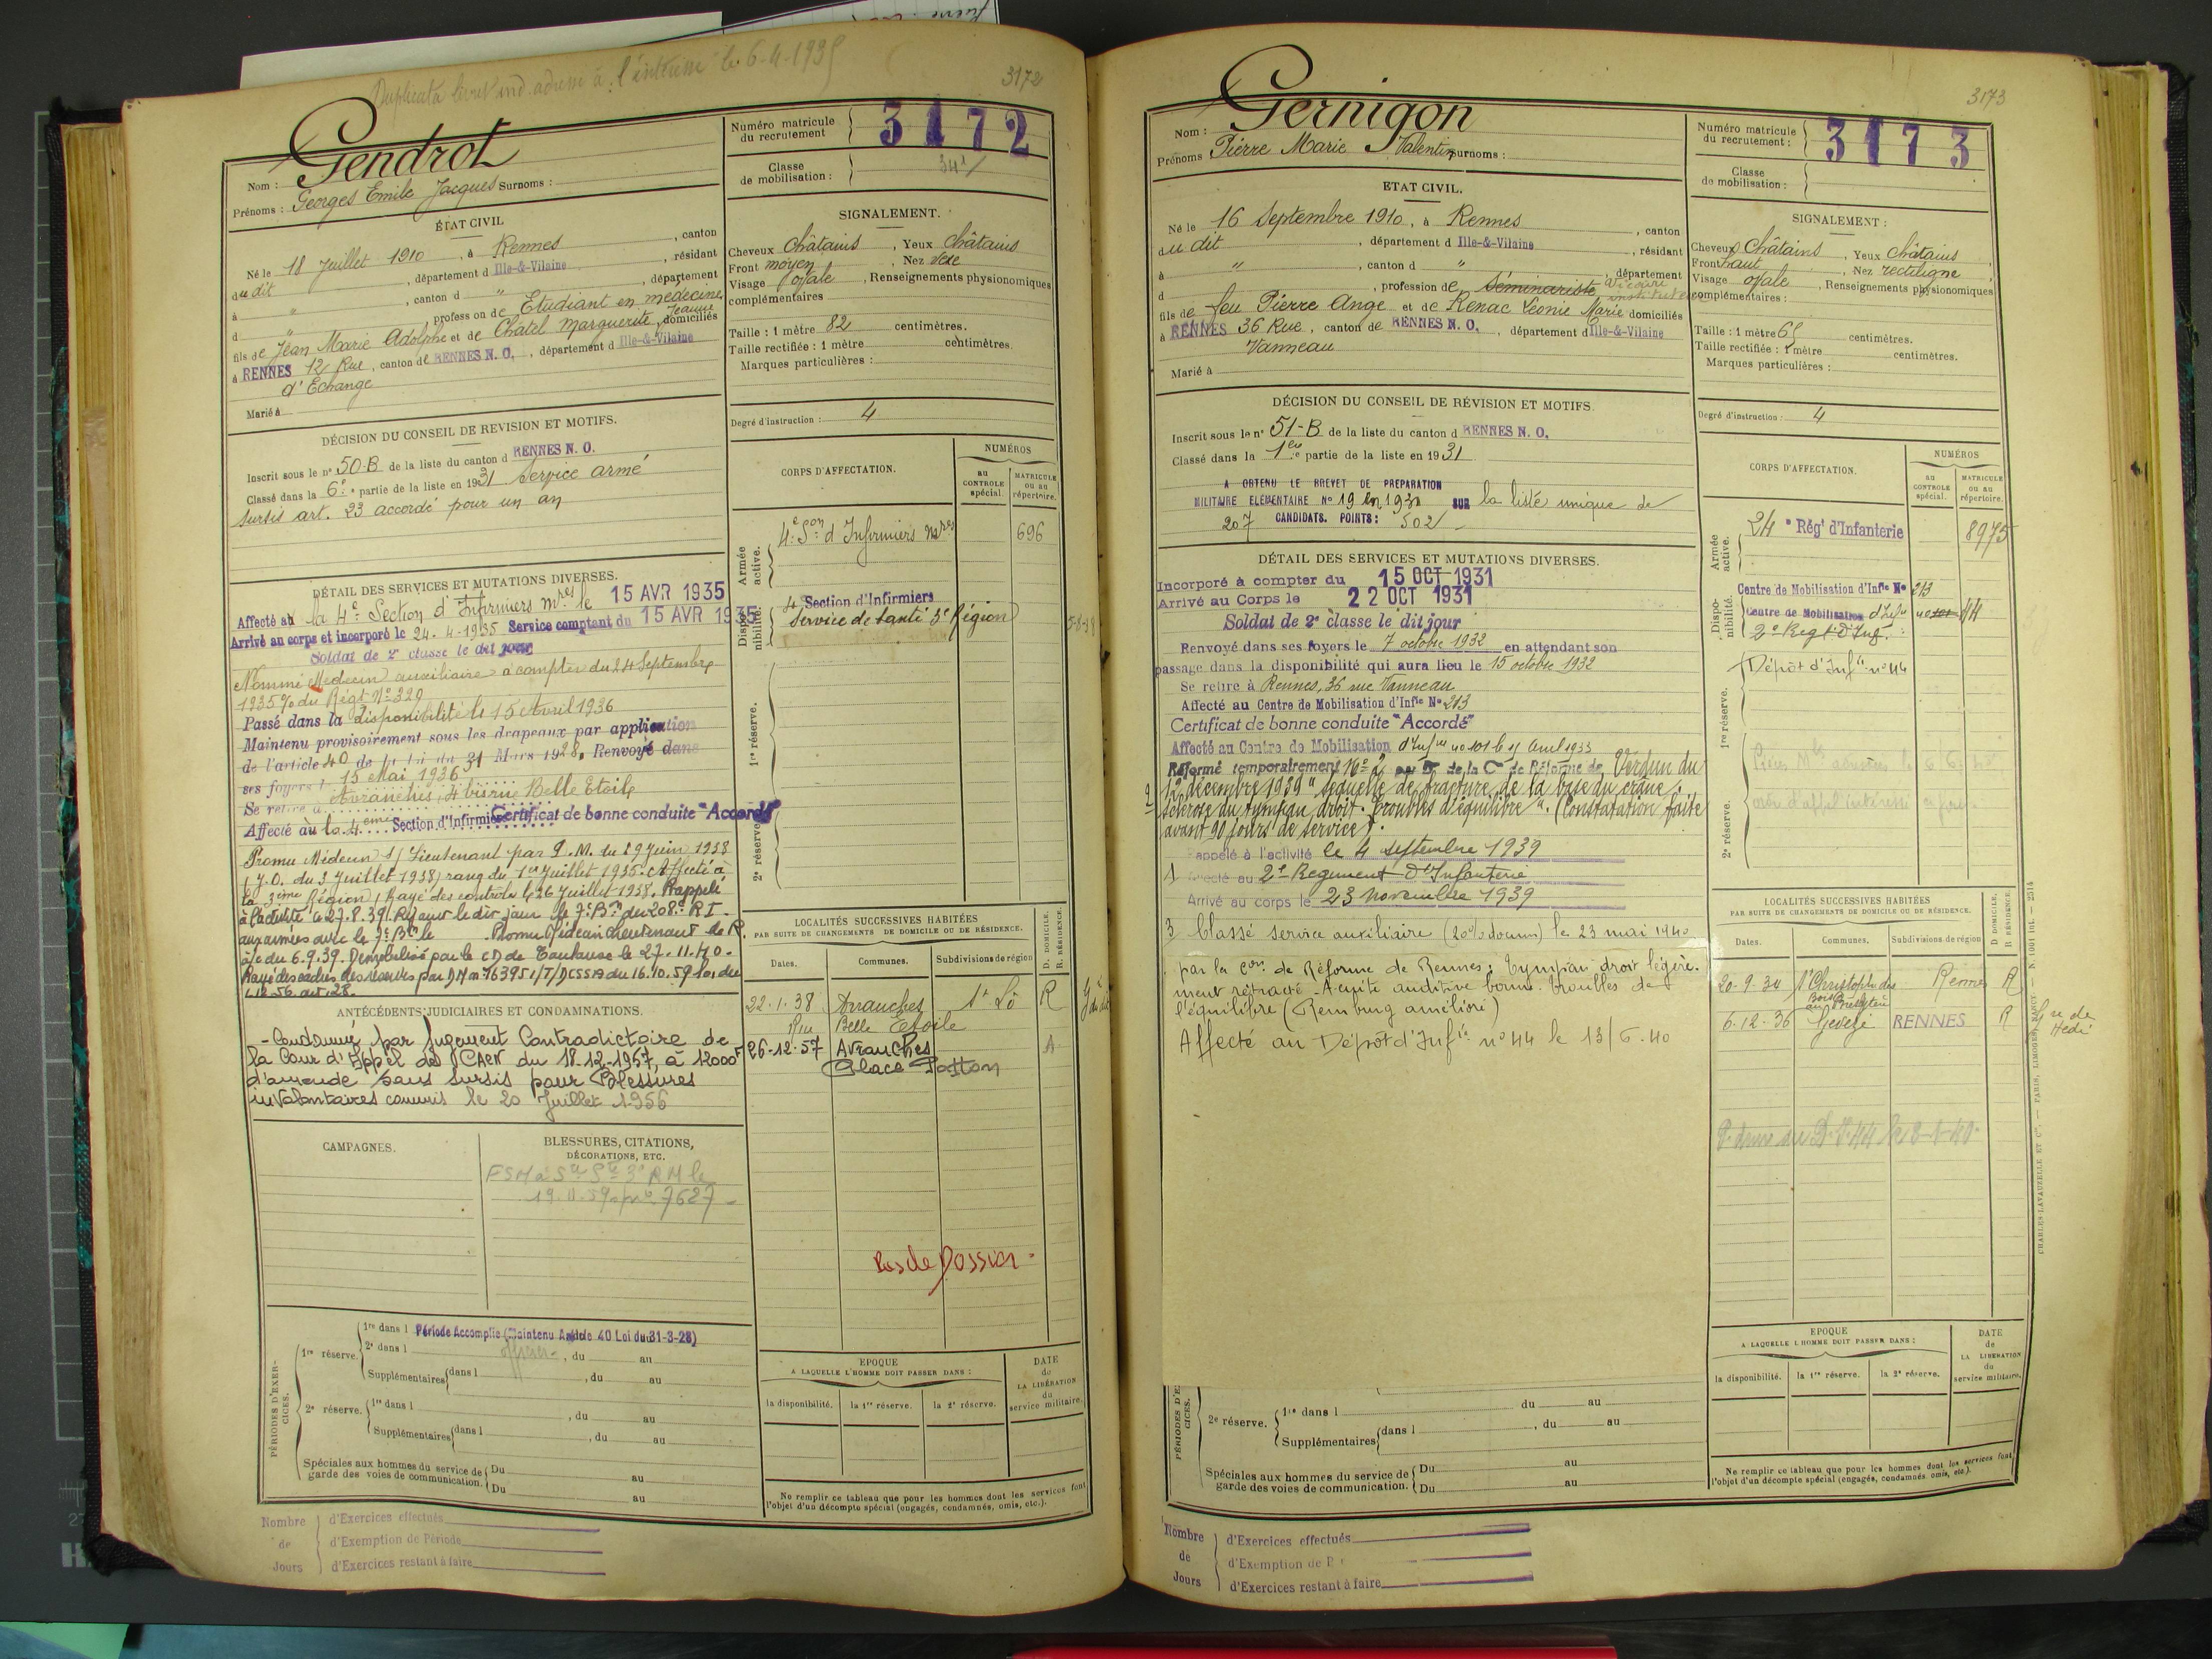 Duplicata livret ind. adressé à l'intéressé le 6-4-1935
3172
Gendrot
Nom :
Prénoms : Georges Emile Jacques Surnoms :
Numéro matricule du recrutement 3172
Classe de mobilisation :
ÉTAT CIVIL
Né le 18 Juillet 1910, à Rennes, canton
du dit, département d Ille-&-Vilaine, résidant
à ", canton d ", département
d ", profession de Etudiant en médecine
fils de Jean Marie Adolphe et de Chatel Marguerite Jeanne, domiciliés
à RENNES 12 Rue, canton de RENNES N. O., département d Ille-&-Vilaine
d'Echange
Marié à
SIGNALEMENT.
Cheveux Châtains, Yeux Châtains
Front moyen, Nez vexe
Visage ovale, Renseignements physionomiques
complémentaires
Taille : 1 mètre 82 centimètres.
Taille rectifiée : 1 mètre centimètres.
Marques particulières :
Degré d'instruction : 4
DÉCISION DU CONSEIL DE REVISION ET MOTIFS.
Inscrit sous le n° 50-B de la liste du canton d RENNES N. O.
Classé dans la 6e partie de la liste en 1931 Service armé
sursis art. 23 accordé pour un an
CORPS D'AFFECTATION.
NUMÉROS
au CONTROLE spécial.
MATRICULE ou au répertoire.
Armée active.
4e Son d'Infirmiers mres 696
Disponibilité.
4 Section d'Infirmiers
Service de Santé 3e Région
1re réserve.
2e réserve.
DÉTAIL DES SERVICES ET MUTATIONS DIVERSES.
Affecté à la 4e Section d'Infirmiers mres le 15 AVR 1935
Arrivé au corps et incorporé le 24-4-1935 Service comptant du 15 AVR 1935
Soldat de 2e classe le dit jour
Nommé Médecin auxiliaire à compter du 24 Septembre
1935 % du Régt N° 329
Passé dans la disponibilité le 15 Avril 1936
Maintenu provisoirement sous les drapeaux par application
de l'article 40 de la loi du 31 Mars 1928. Renvoyé dans
ses foyers le 15 Mai 1936
Se retire à Avranches, 4 bis rue Belle Etoile
Affecté à la 4ème Section d'Infirmiers Certificat de bonne conduite "Accordé"
Promu Médecin S/Lieutenant par D.M. du 29 Juin 1938
(J.O. du 3 Juillet 1938) rang du 1er Juillet 1935. Affecté à
la 3ème Région, Rayé des contrôles le 26 Juillet 1938. Rappelé
à l'activité le 27.8.39. Rejoint le dit jour le 7e Bn du 208e R I
aux armées avec le 7e Bn le Promu Médecin Lieutenant de R.
à/c du 6.9.39. Démobilisé par le CD de Toulouse le 27.11.40.
Rayé des cadres des réserves par DM n° 163951/T/DCSSA du 16.10.59 loi du
1.12.56. art. 28.
ANTÉCÉDENTS JUDICIAIRES ET CONDAMNATIONS.
- Condamné par Jugement Contradictoire de
la Cour d'Appel de CAEN du 18-12-1957, à 12000F
d'amende sans sursis pour Blessures
involontaires commis le 20 Juillet 1956
LOCALITÉS SUCCESSIVES HABITÉES
PAR SUITE DE CHANGEMENTS DE DOMICILE OU DE RÉSIDENCE.
Dates. Communes. Subdivisions de région D. DOMICILE. R. RÉSIDENCE.
22-1-38 Avranches St Lô R
Rue Belle Etoile
26-12-57 AVranches
Place Patton
CAMPAGNES.
BLESSURES, CITATIONS, DÉCORATIONS, ETC.
Pas de Dossier
PÉRIODES D'EXERCICES.
1re réserve. 1re dans l Période Accomplie (Maintenu Article 40 Loi du 31-3-28)
2e dans l, du au
Supplémentaires dans l, du au
2e réserve. 1re dans l, du au
Supplémentaires dans l, du au
Spéciales aux hommes du service de garde des voies de communication. Du au
Du au
EPOQUE
A LAQUELLE L'HOMME DOIT PASSER DANS :
la disponibilité. la 1re réserve. la 2e réserve.
DATE de LA LIBÉRATION du service militaire.
Ne remplir ce tableau que pour les hommes dont les services font
l'objet d'un décompte spécial (engagés, condamnés, omis, etc.).
Nombre de Jours
d'Exercices effectués
d'Exemption de Période
d'Exercices restant à faire
3173
Gernigon
Nom :
Prénoms Pierre Marie Valentin Surnoms :
Numéro matricule du recrutement : 3173
Classe de mobilisation :
ETAT CIVIL.
Né le 16 Septembre 1910, à Rennes, canton
du dit, département d Ille-&-Vilaine, résidant
à ", canton d ", département
d, profession de Séminariste Vicaire instituteur
fils de feu Pierre Ange et de Renac Léonie Marie domiciliés
à RENNES 36 Rue, canton de RENNES N. O., département d Ille-&-Vilaine
Vanneau
Marié à
SIGNALEMENT :
Cheveux Châtains, Yeux Châtains
Front haut, Nez rectiligne
Visage ovale, Renseignements physionomiques
complémentaires :
Taille : 1 mètre 65 centimètres.
Taille rectifiée : 1 mètre centimètres.
Marques particulières :
Degré d'instruction : 4
DÉCISION DU CONSEIL DE RÉVISION ET MOTIFS.
Inscrit sous le n° 51-B de la liste du canton d RENNES N. O.
Classé dans la 1ère partie de la liste en 1931
A OBTENU LE BREVET DE PREPARATION
MILITAIRE ELEMENTAIRE No 19 en 1930 SUR la liste unique de
207 CANDIDATS. POINTS : 502
CORPS D'AFFECTATION.
NUMÉROS
au CONTROLE spécial.
MATRICULE ou au répertoire.
Armée active.
24e Régt d'Infanterie 8975
Disponibilité.
Centre de Mobilisation d'Infie No 213
Centre de Mobilisation d'Infie no 101 44
2e Regt d'Inf.
1re réserve.
Dépôt d'Infie n° 44
2e réserve.
DÉTAIL DES SERVICES ET MUTATIONS DIVERSES.
Incorporé à compter du 15 OCT 1931
Arrivé au Corps le 22 OCT 1931
Soldat de 2e classe le dit jour
Renvoyé dans ses foyers le 7 octobre 1932 en attendant son
passage dans la disponibilité qui aura lieu le 15 octobre 1932
Se retire à Rennes, 36 rue Vanneau
Affecté au Centre de Mobilisation d'Infie No 213
Certificat de bonne conduite "Accordé"
Affecté au Centre de Mobilisation d'Infie no 101 le 15 Avril 1933
2 Réformé temporairement No 2 par la Con de Réforme de Verdun du
12 décembre 1939 "séquelle de fracture de la base du crâne,
sclérose du tympan droit. Troubles d'équilibre". (Constatation faite
avant 90 jours de service).
Rappelé à l'activité le 4 septembre 1939
1 Affecté au 2e Regiment d'Infanterie
Arrivé au corps le 23 novembre 1939
3 Classé service auxiliaire (20% d'invam) le 23 mai 1940
par la Con de Réforme de Rennes : Tympan droit légère-
ment rétracté. Acuité auditive bonne. Troubles de
l'équilibre (Remburg amélioré)
Affecté au Dépôt d'Infie n° 44 le 13/6.40
LOCALITÉS SUCCESSIVES HABITÉES
PAR SUITE DE CHANGEMENTS DE DOMICILE OU DE RÉSIDENCE.
Dates. Communes. Subdivisions de région D. DOMICILE. R. RÉSIDENCE.
20-9-34 St Christophe des Bois Rennes R
au Presbytère
6-12-36 Gevezé RENNES R
CHARLES-LAVAUZELLE ET Cie. — PARIS, LIMOGES, NANCY.
PÉRIODES D'EXERCICES.
2e réserve. 1re dans l du au
Supplémentaires dans l, du au
Spéciales aux hommes du service de garde des voies de communication. Du au
Du au
EPOQUE
A LAQUELLE L'HOMME DOIT PASSER DANS :
la disponibilité. la 1re réserve. la 2e réserve.
DATE de LA LIBERATION du service militaire.
Ne remplir ce tableau que pour les hommes dont les services font
l'objet d'un décompte spécial (engagés, condamnés, omis, etc.).
Nombre de Jours
d'Exercices effectués
d'Exemption de P
d'Exercices restant à faire